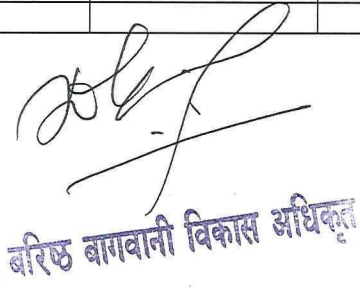 बरिष्ठ बागवानी विकास अधिकृत